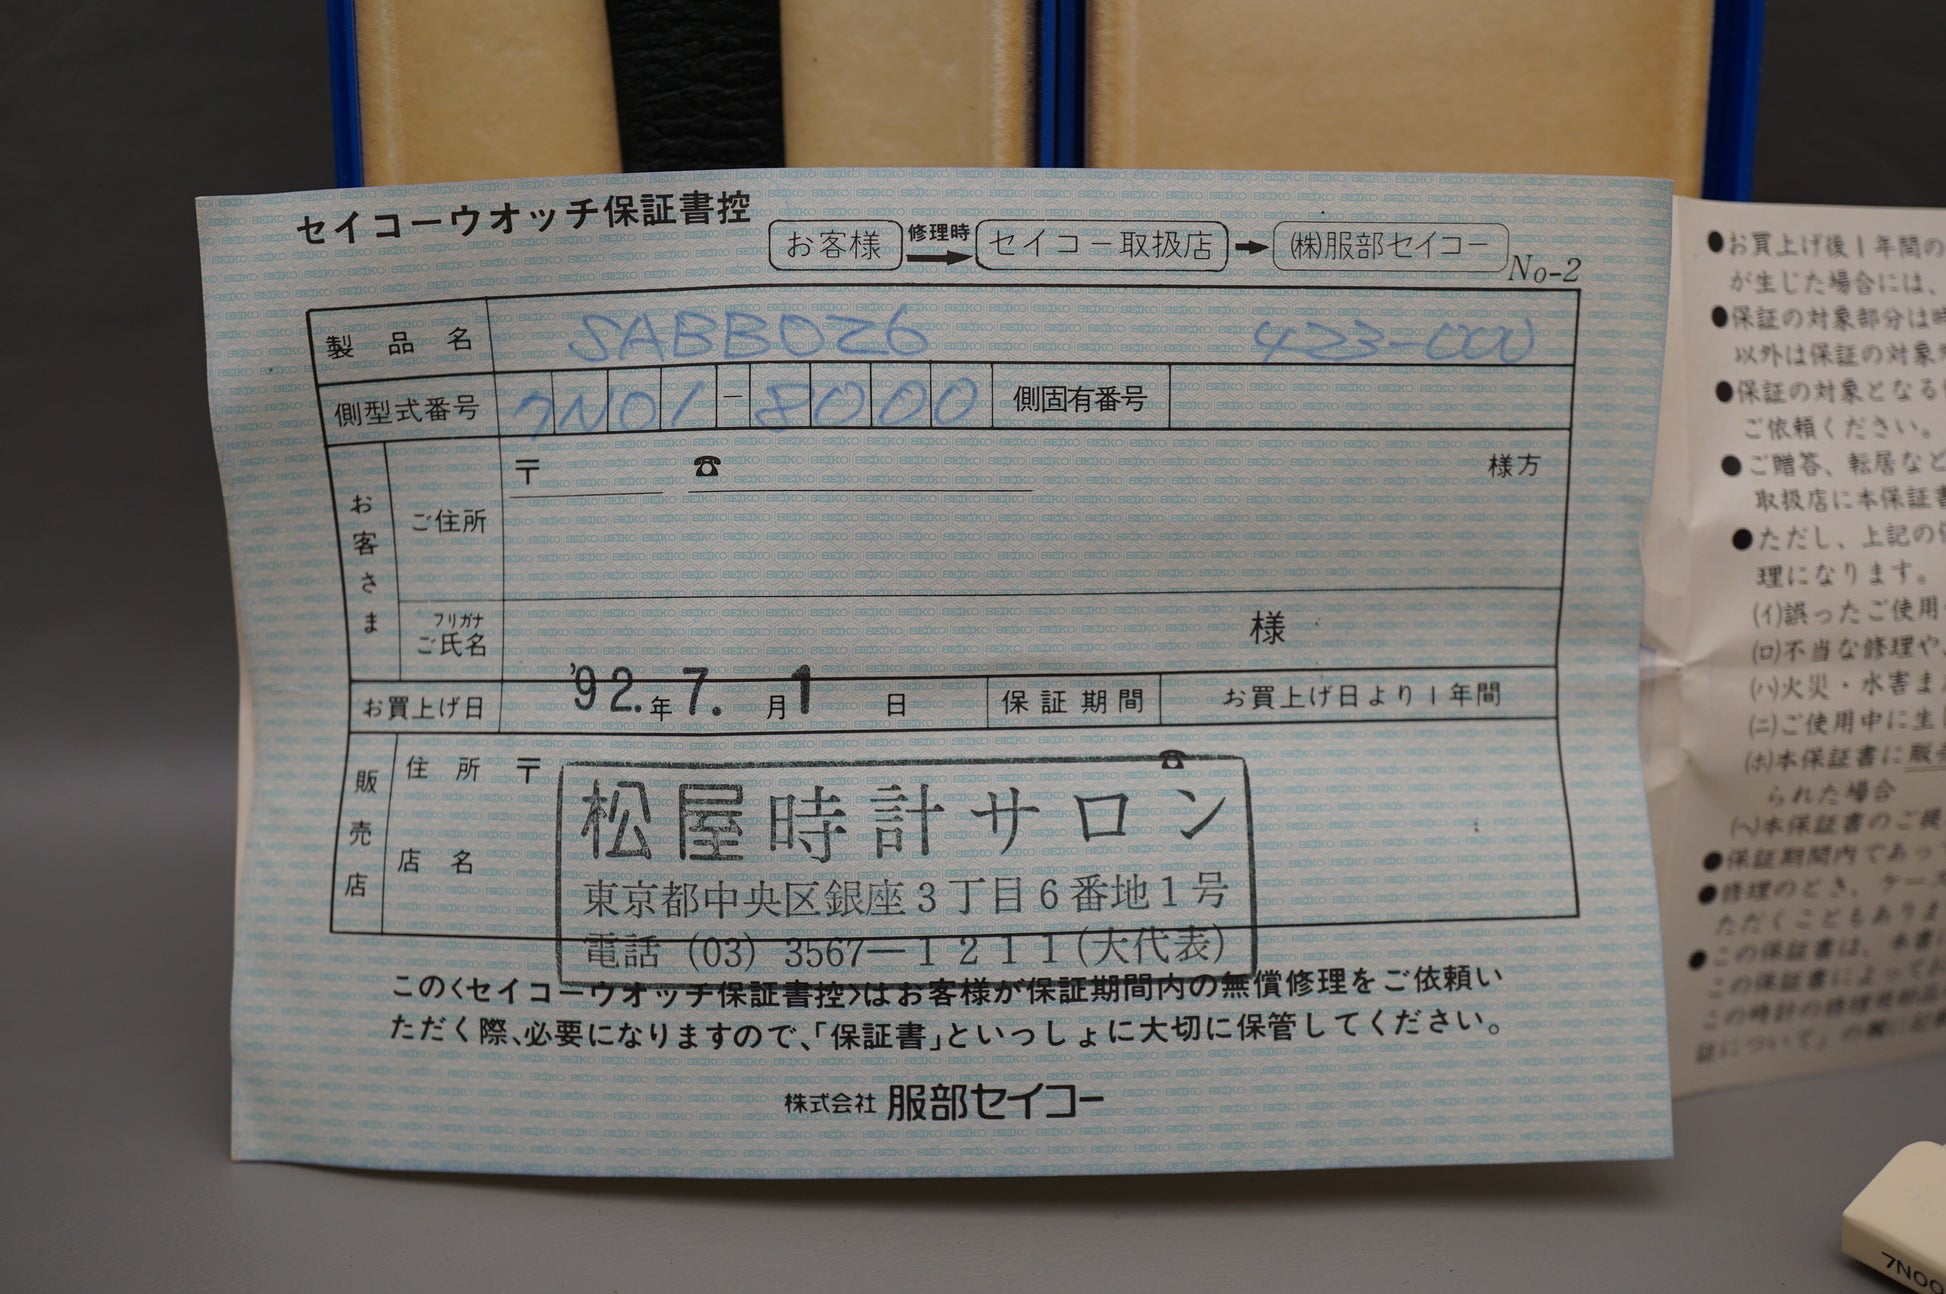 セイコーウオッチ保証書控
お客様 修理時 セイコー取扱店 ㈱服部セイコー No-2
製品名 SABB026 423-000
側型式番号 7N01-8000 側固有番号
お客さま
ご住所 〒 ☎ 様方
フリガナ
ご氏名 様
お買上げ日 '92.年7.月1日 保証期間 お買上げ日より1年間
販売店
住所 〒 ☎
店名
松屋時計サロン
東京都中央区銀座3丁目6番地1号
電話 (03) 3567―1211(大代表)
この<セイコーウオッチ保証書控>はお客様が保証期間内の無償修理をご依頼い
ただく際、必要になりますので、「保証書」といっしょに大切に保管してください。
株式会社 服部セイコー
●お買上げ後1年間の
が生じた場合には、
●保証の対象部分は時
以外は保証の対象
●保証の対象となる
ご依頼ください。
●ご贈答、転居など
取扱店に本保証書
●ただし、上記の
理になります。
(イ)誤ったご使用
(ロ)不当な修理や、
(ハ)火災・水害ま
(ニ)ご使用中に生
(ホ)本保証書に販
られた場合
(ヘ)本保証書のご提
●保証期間内であっ
●修理のとき、ケース
ただくこともありま
●この保証書は、本書に
この保証書によってお
この時計の修理用部品
証について」の欄に記
7N00